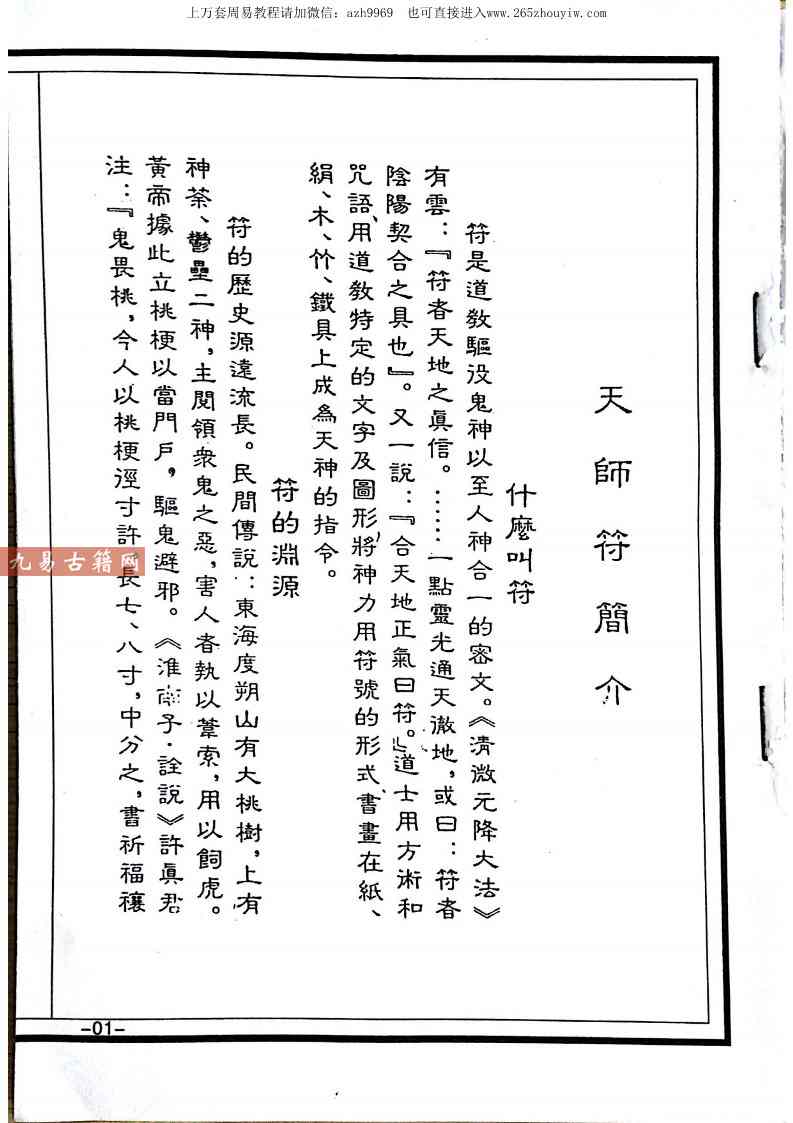 上万套周易教程请加微信：azh9969 也可直接进入www.265zhouyiw.com
天師符簡介
什麼叫符
符是道教驅役鬼神以至人神合一的密文。《清微元降大法》
有雲：『符者天地之真信。……一點靈光通天徹地，或曰：符者
陰陽契合之具也』。又一說：『合天地正氣曰符。』道士用方術和
咒語、用道教特定的文字及圖形，將神力用符號的形式、書畫在紙、
絹、木、竹、鐵具上成為天神的指令。
符的淵源
符的歷史源遠流長。民間傳說：東海度朔山有大桃樹，上有
神荼、鬱壘二神，主閱領衆鬼之惡，害人者執以葦索，用以飼虎。
黃帝據此立桃梗以當門戶，驅鬼避邪。《淮南子·詮說》許真君
注：『鬼畏桃，今人以桃梗徑寸許，長七、八寸，中分之，書祈福禳
九易古籍网
-01-